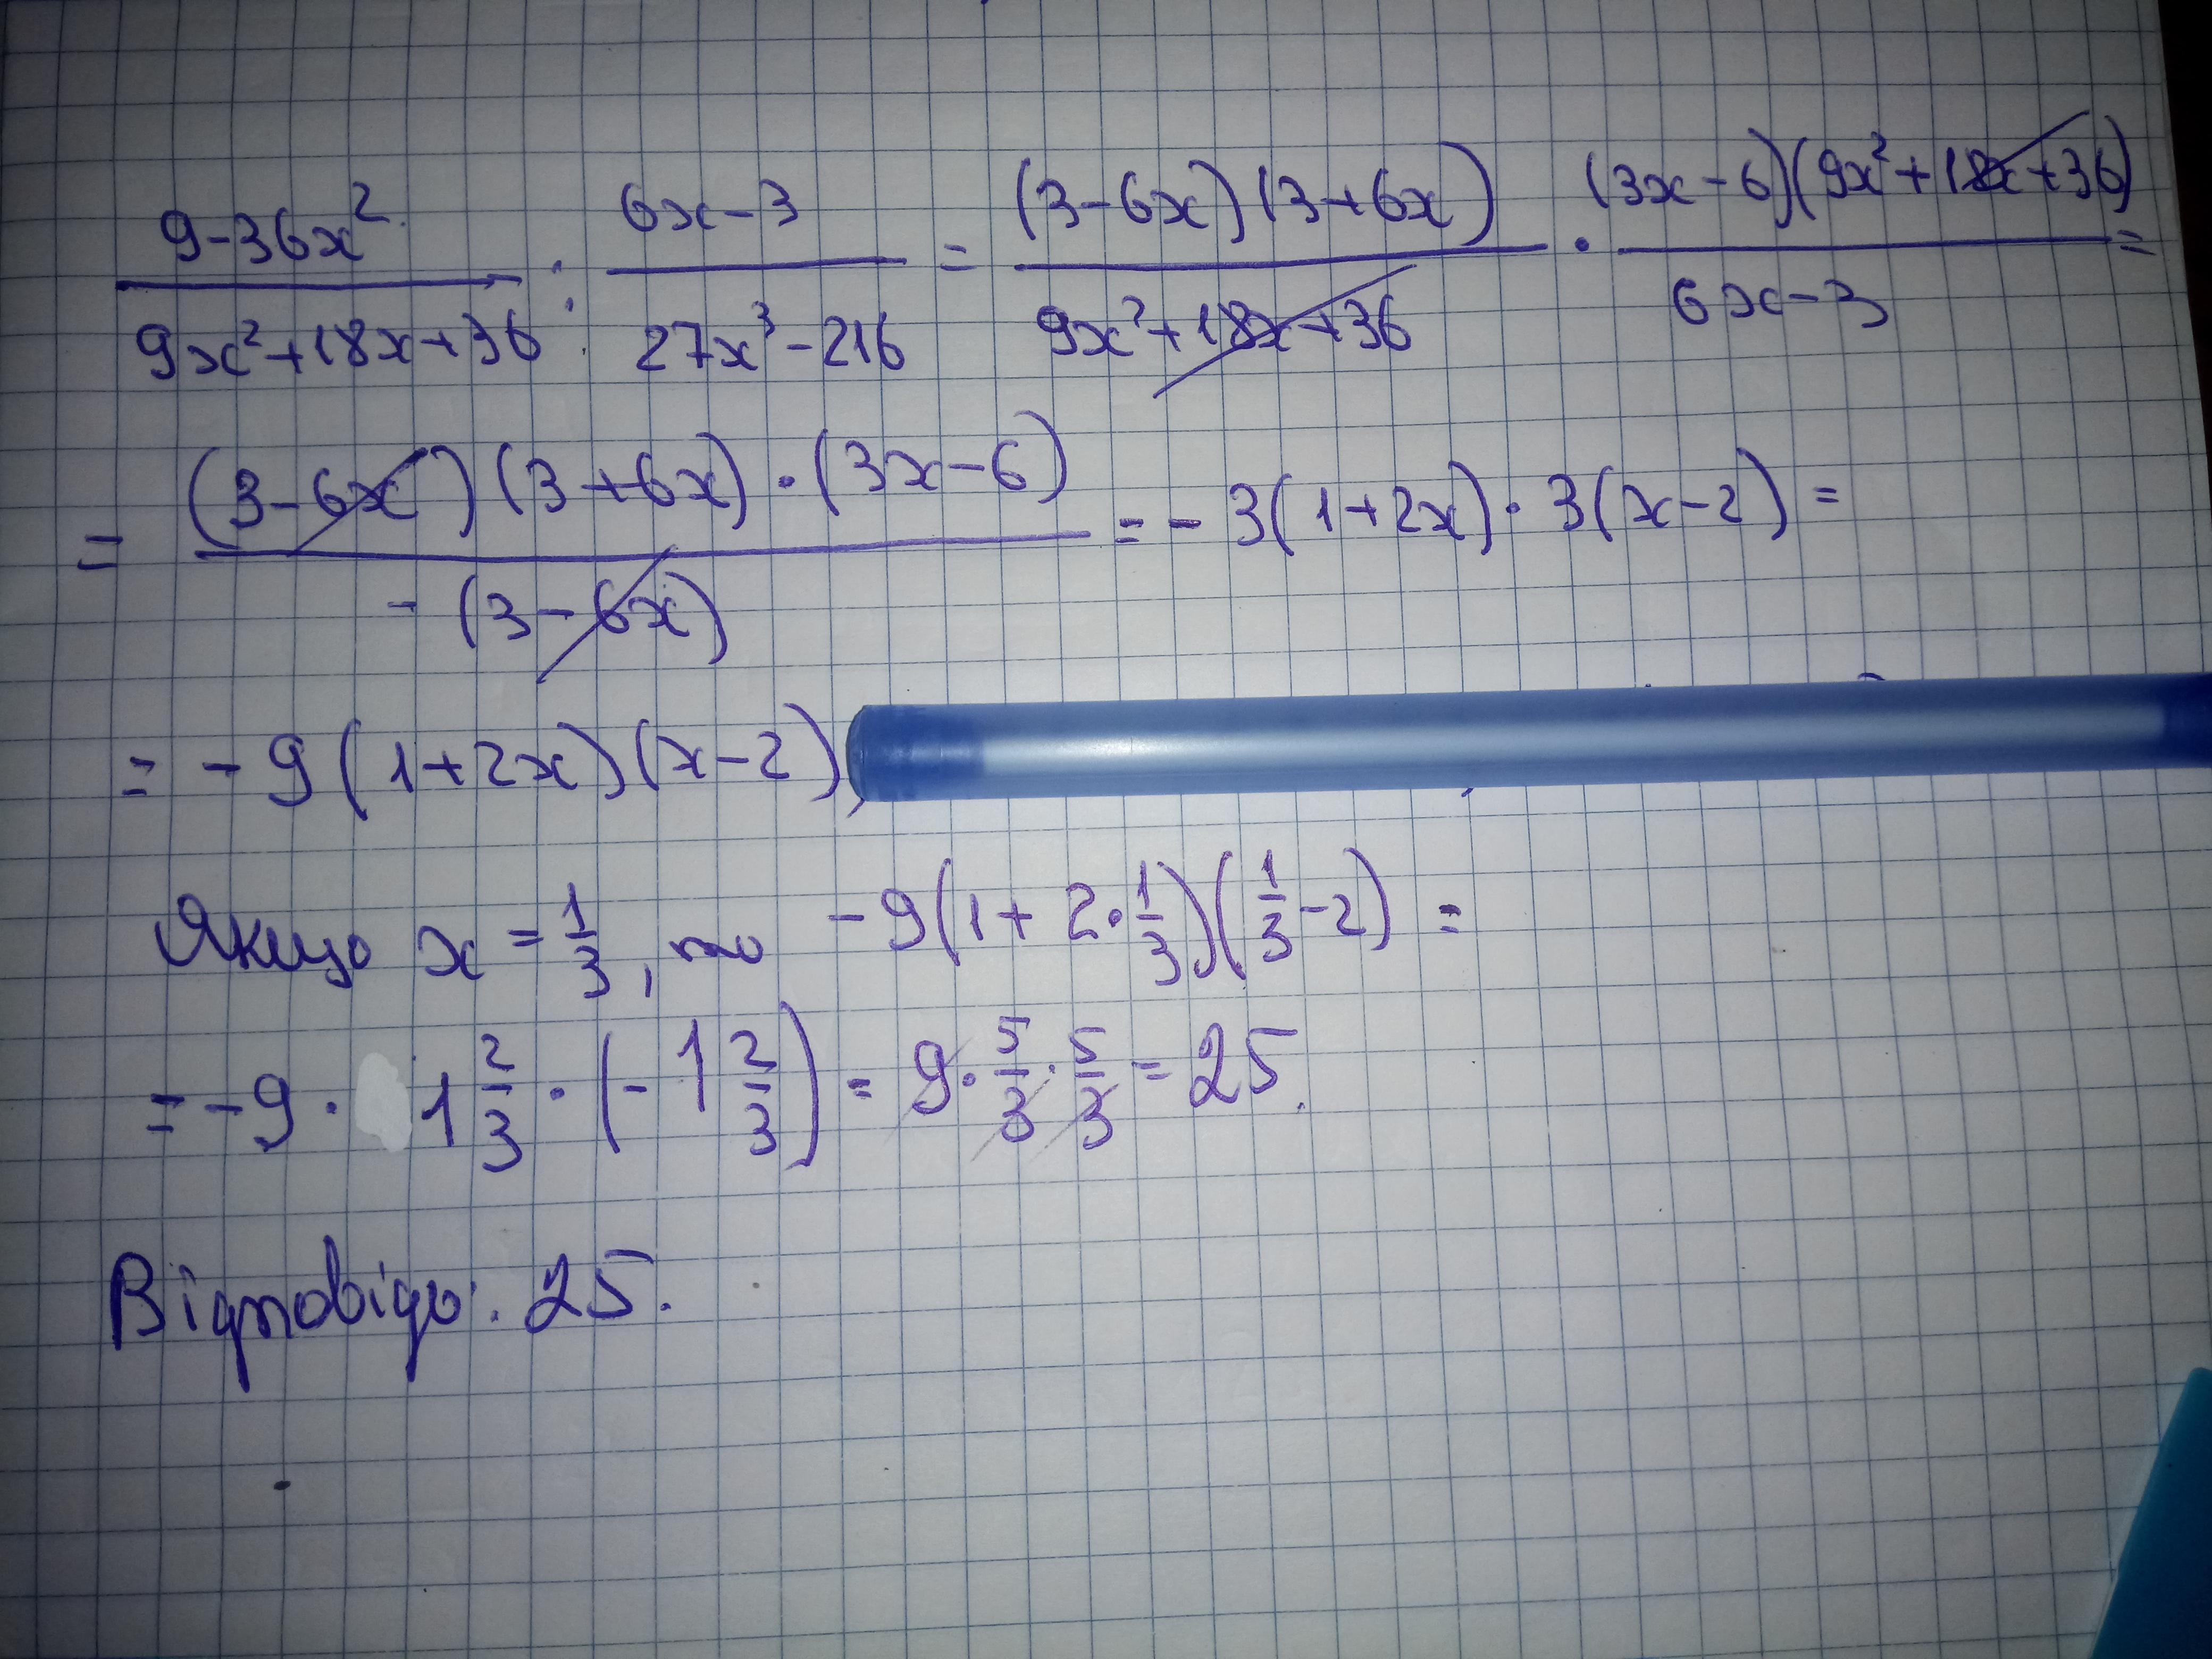 (9-36x²)/(9x²+18x+36) : (6x-3)/(27x³-216) = ((3-6x)(3+6x))/(9x²+18x+36) · ((3x-6)(9x²+18x+36))/(6x-3) =
= ((3-6x)(3+6x)·(3x-6))/(-(3-6x)) = -3(1+2x)·3(x-2) =
= -9(1+2x)(x-2),
Якщо x = 1/3, то -9(1+2·1/3)(1/3-2) =
= -9 · 1 2/3 · (-1 2/3) = 9 · 5/3 · 5/3 = 25.
Відповідь: 25.